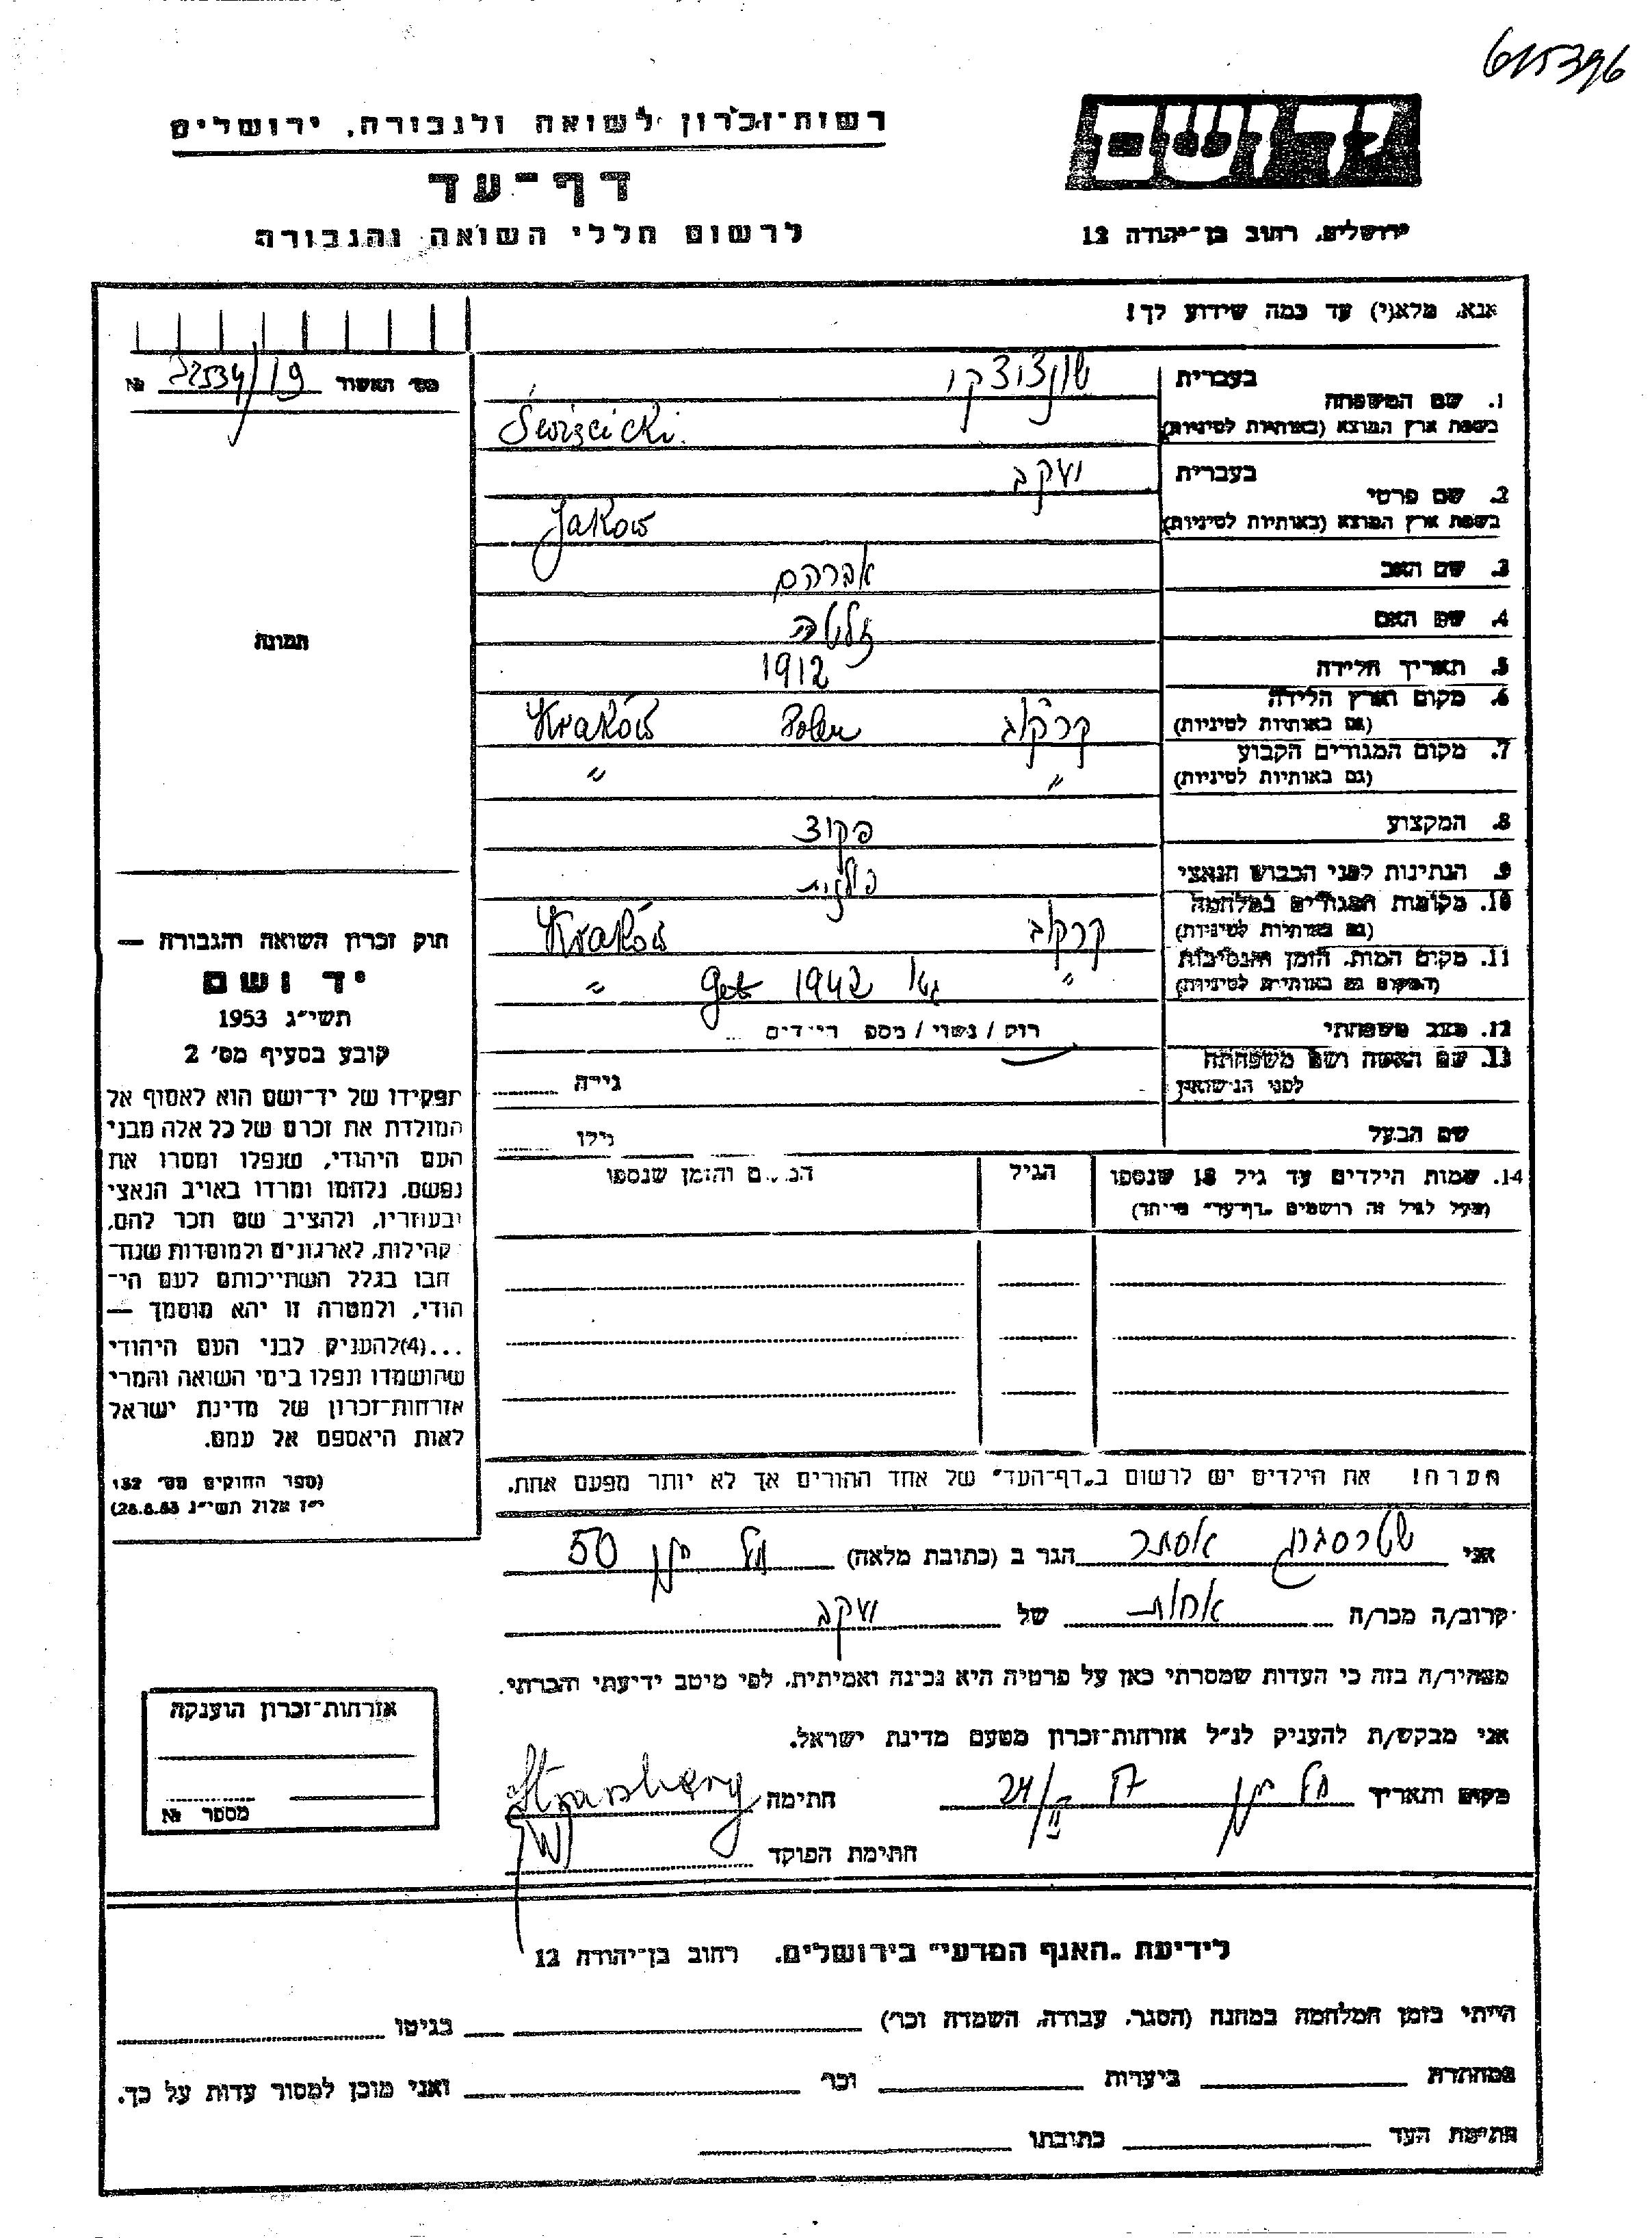 615396
יד ושם
ירושלים, רחוב בן-יהודה 12
רשות-זכרון לשואה ולגבורה, ירושלים
דף-עד
לרשום חללי השואה והגבורה
אנא, מלא(י) עד כמה שידוע לך!
מס׳ האשור 19/22534 №
תמונה
1. שם המשפחה
בעברית
בשפת ארץ המוצא (באותיות לטיניות)
2. שם פרטי
בעברית יעקב
בשפת ארץ המוצא (באותיות לטיניות) Jakow
3. שם האב אברהם
4. שם האם
5. תאריך הלידה 1912
6. מקום וארץ הלידה
(גם באותיות לטיניות) קרקוב Polen Kraków
7. מקום המגורים הקבוע
(גם באותיות לטיניות) " "
8. המקצוע פקיד
9. הנתינות לפני הכבוש הנאצי פולנית
10. מקומות המגורים במלחמה
(גם באותיות לטיניות) קרקוב Kraków
11. מקום המות, הזמן והנסיבות
(המקום גם באותיות לטיניות) " גטו 1942 get "
12. מצב משפחתי רוק / נשוי / מספ הילדים ...
13. שם האשה ושם משפחתה
לפני הנישואין גילה
שם הבעל גילו
14. שמות הילדים עד גיל 18 שנספו
(מעל לגיל זה רושמים „דף-עד" מיוחד)
הגיל
המקום והזמן שנספו
הערה! את הילדים יש לרשום ב„דף-העד" של אחד ההורים אך לא יותר מפעם אחת.
חוק זכרון השואה והגבורה —
יד ושם
תשי״ג 1953
קובע בסעיף מס׳ 2
תפקידו של יד-ושם הוא לאסוף אל
המולדת את זכרם של כל אלה מבני
העם היהודי, שנפלו ומסרו את
נפשם, נלחמו ומרדו באויב הנאצי
ובעוזריו, ולהציב שם וזכר להם,
לקהילות, לארגונים ולמוסדות שנח-
רבו בגלל השתייכותם לעם הי-
הודי, ולמטרה זו יהא מוסמך —
...(4)להעניק לבני העם היהודי
שהושמדו ונפלו בימי השואה והמרי
אזרחות-זכרון של מדינת ישראל
לאות היאספם אל עמם.
(ספר החוקים מס׳ 132
י״ז אלול תשי״ג 28.8.53)
אני שטרסברג אסתר הגר ב (כתובת מלאה) 50
קרוב/ה מכר/ה אחות של יעקב
מצהיר/ה בזה כי העדות שמסרתי כאן על פרטיה היא נכונה ואמיתית, לפי מיטב ידיעתי והכרתי.
אני מבקש/ת להעניק לנ״ל אזרחות-זכרון מטעם מדינת ישראל.
מקום ותאריך חתימה Strasberg
חתימת הפוקד
אזרחות-זכרון הוענקה
מספר №
לידיעת „האגף המדעי" בירושלים, רחוב בן-יהודה 12
הייתי בזמן המלחמה במחנה (הסגר, עבודה, השמדה וכו׳) בגיטו
במחתרת ביערות וכו׳ ואני מוכן למסור עדות על כך.
חתימת העד כתובתו